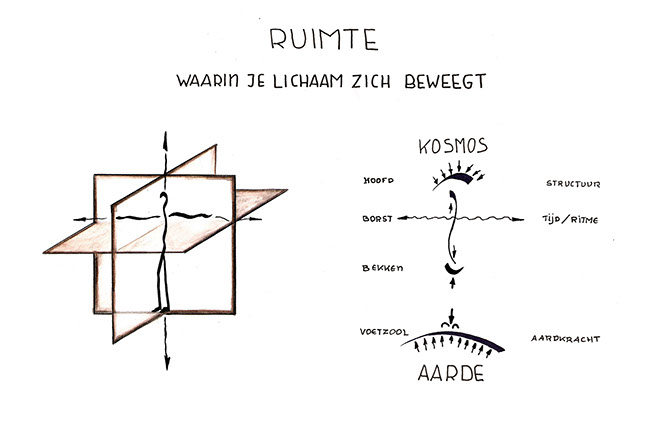 RUIMTE
WAARIN JE LICHAAM ZICH BEWEEGT
KOSMOS
HOOFD STRUCTUUR
BORST TIJD/RITME
BEKKEN
VOETZOOL AARDKRACHT
AARDE